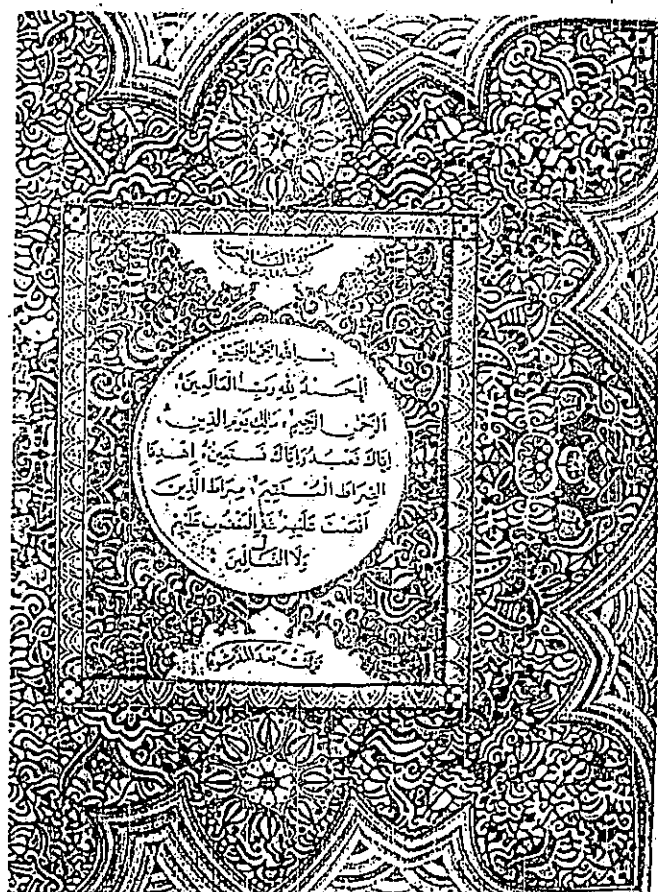 بسم الله الرحمن الرحيم
الحمد لله رب العالمين
الرحمن الرحيم مالك يوم الدين
اياك نعبد واياك نستعين اهدنا
الصراط المستقيم صراط الذين
انعمت عليهم غير المغضوب عليهم
ولا الضالين